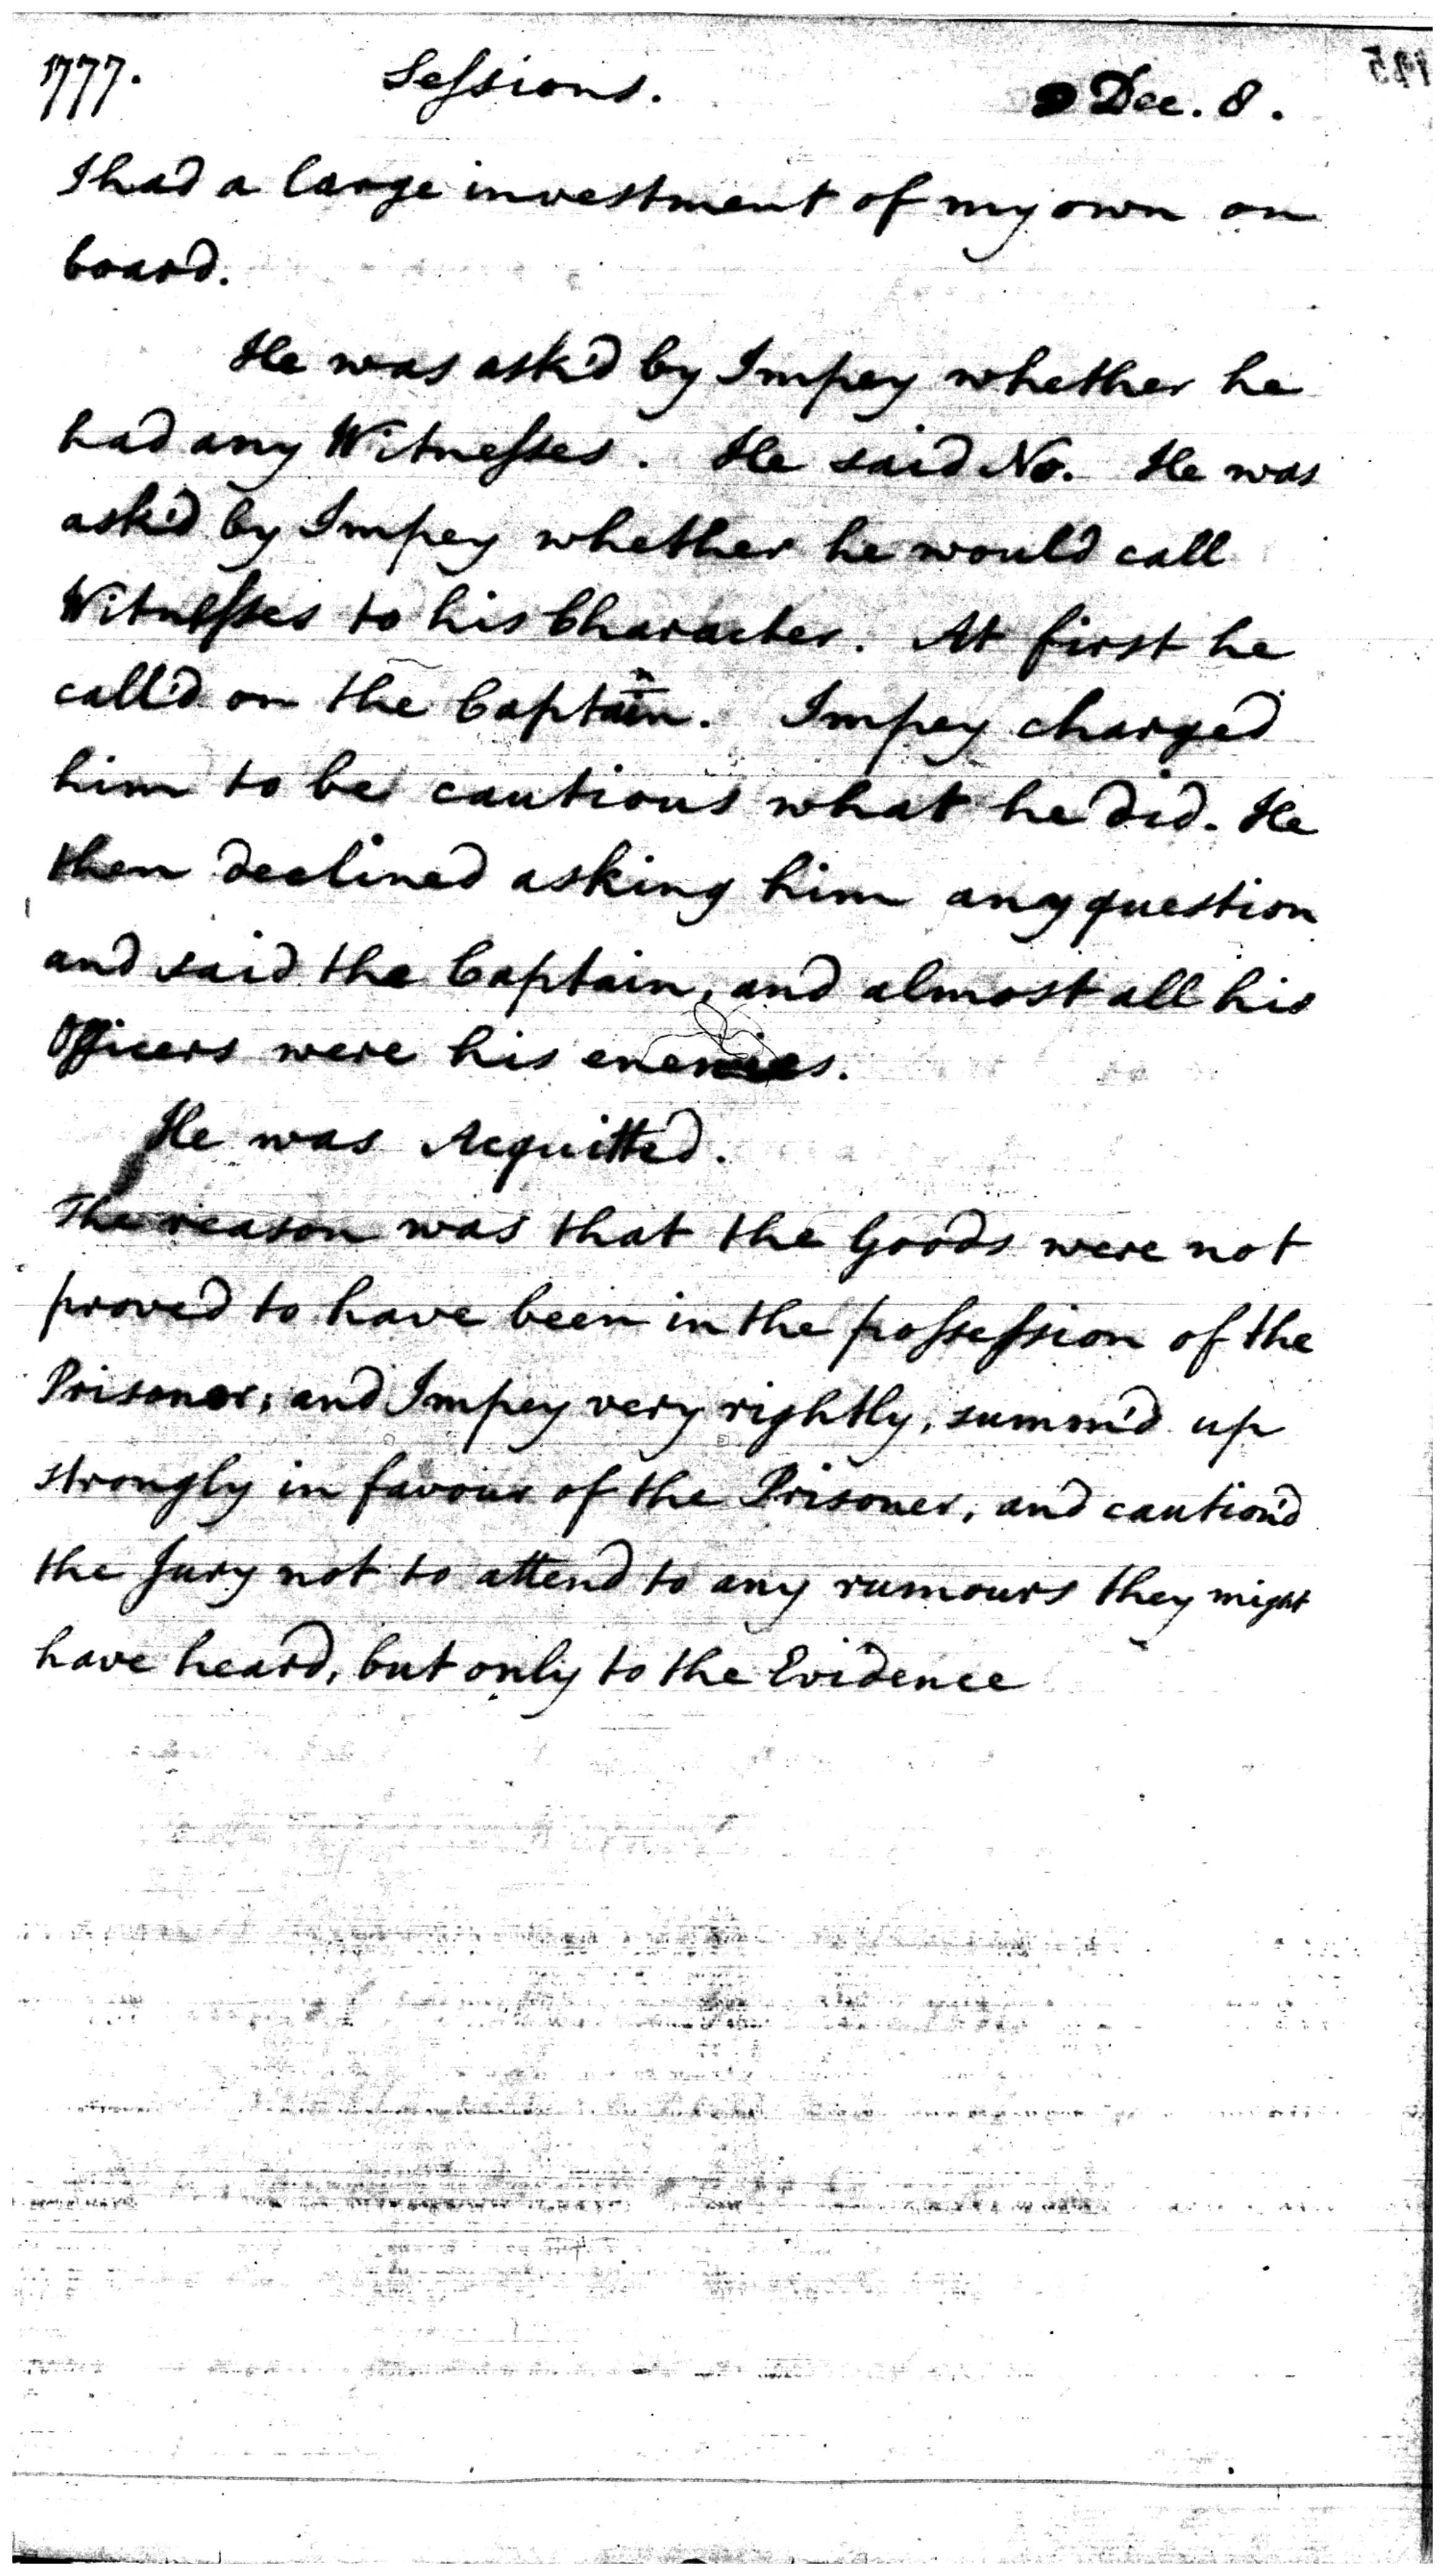 1777. Sessions. Dec. 8.
I had a large investment of my own on
board.
He was ask'd by Impey whether he
had any Witnesses. He said No. He was
ask'd by Impey whether he would call
Witnesses to his Character. At first he
call'd on the Captain. Impey charged
him to be cautious what he did. He
then declined asking him any question
and said the Captain, and almost all his
Officers were his enemies.
He was Acquitted.
The reason was that the Goods were not
proved to have been in the possession of the
Prisoner; and Impey very rightly, summ'd up
strongly in favour of the Prisoner, and caution'd
the Jury not to attend to any rumours they might
have heard, but only to the Evidence